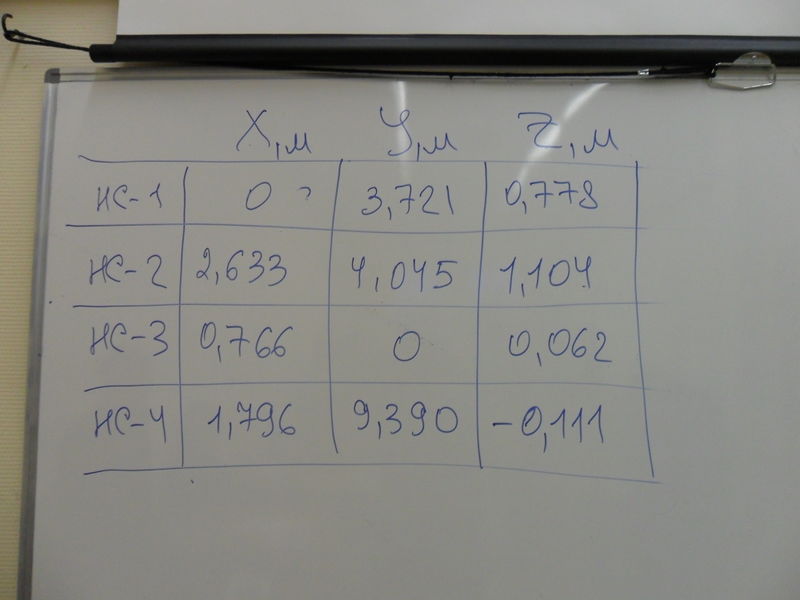 X,м Y,м Z,м
НС-1 0 3,721 0,778
НС-2 2,633 4,045 1,104
НС-3 0,766 0 0,062
НС-4 1,796 9,390 -0,111